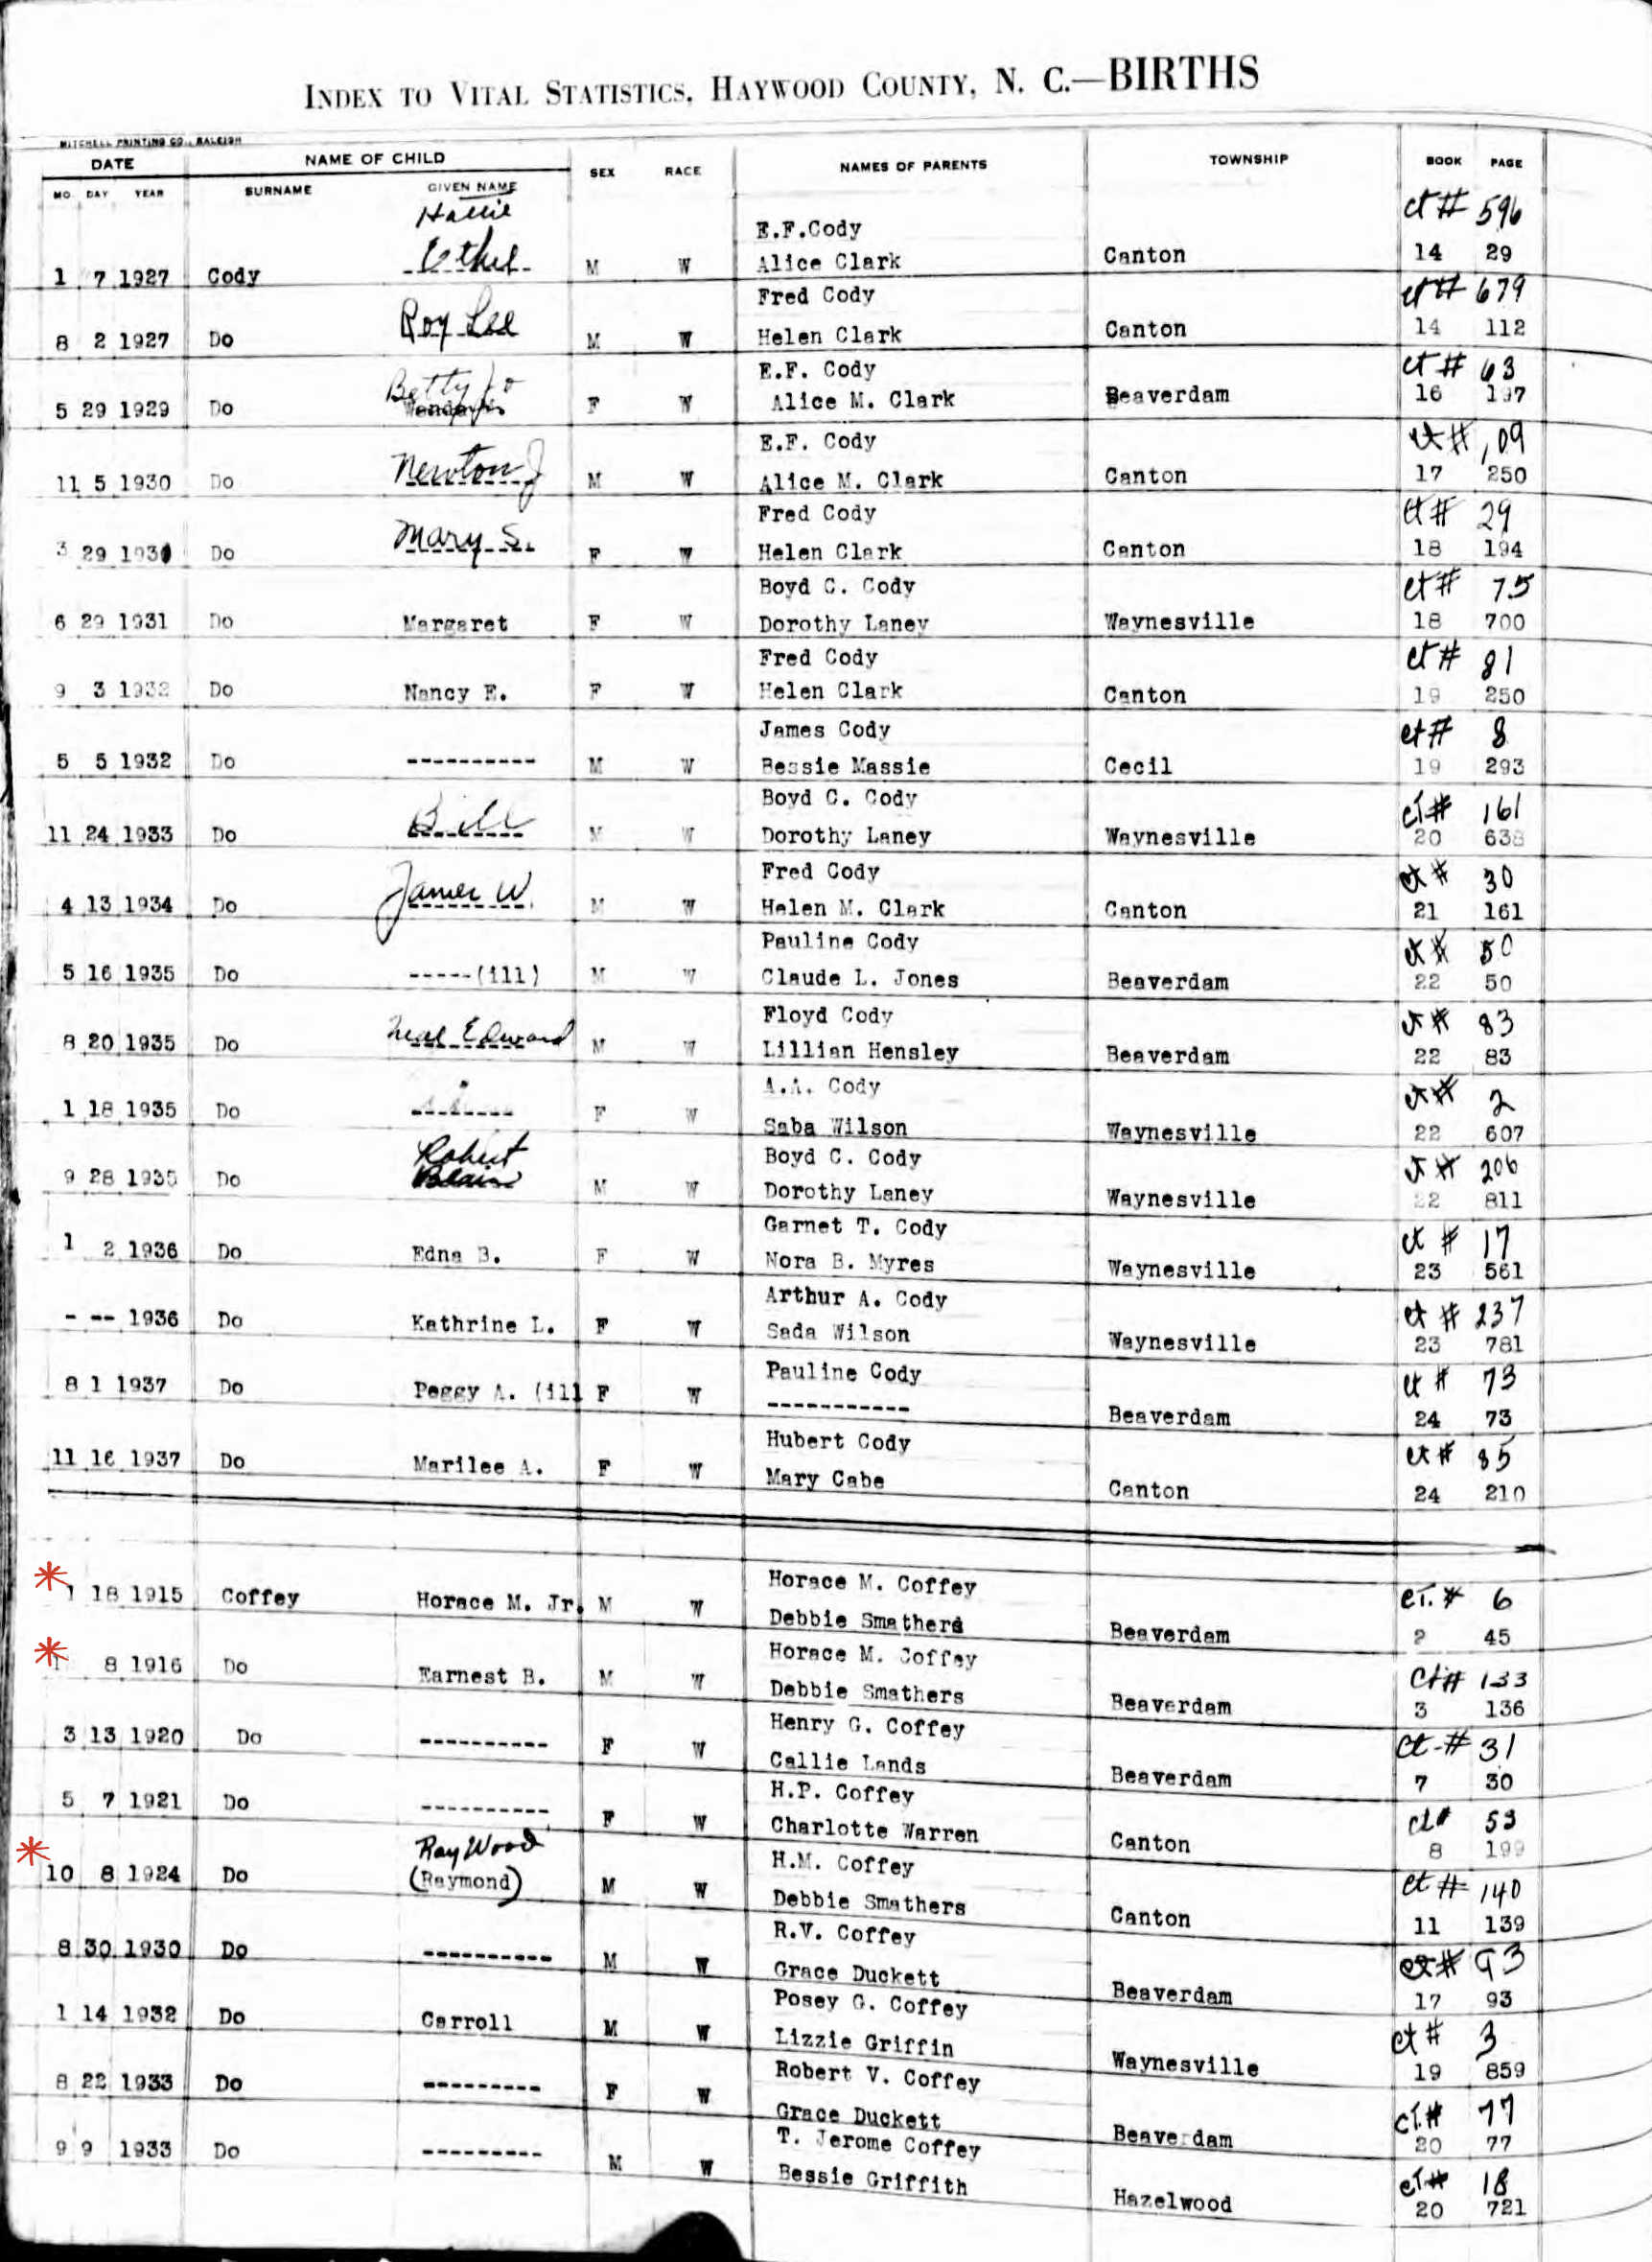 INDEX TO VITAL STATISTICS, HAYWOOD COUNTY, N. C.—BIRTHS
MITCHELL PRINTING CO., RALEIGH
DATE NAME OF CHILD SEX RACE NAMES OF PARENTS TOWNSHIP BOOK PAGE
MO. DAY YEAR SURNAME GIVEN NAME
Hallie E.F.Cody ct # 596
1 7 1927 Cody Ethel M W Alice Clark Canton 14 29
Fred Cody ct # 679
8 2 1927 Do Roy Lee M W Helen Clark Canton 14 112
Betty Jo E.F. Cody ct # 63
5 29 1929 Do F W Alice M. Clark Beaverdam 16 197
E.F. Cody ct # 109
11 5 1930 Do Newton J M W Alice M. Clark Canton 17 250
Fred Cody ct # 29
3 29 1931 Do Mary S. F W Helen Clark Canton 18 194
Boyd C. Cody ct # 75
6 29 1931 Do Margaret F W Dorothy Laney Waynesville 18 700
Fred Cody ct # 81
9 3 1932 Do Nancy E. F W Helen Clark Canton 19 250
James Cody ct # 8
5 5 1932 Do ---------- M W Bessie Massie Cecil 19 293
Boyd C. Cody ct # 161
11 24 1933 Do Bill M W Dorothy Laney Waynesville 20 638
Fred Cody ct # 30
4 13 1934 Do James W. M W Helen M. Clark Canton 21 161
Pauline Cody ct # 50
5 16 1935 Do -----(ill) M W Claude L. Jones Beaverdam 22 50
Floyd Cody ct # 83
8 20 1935 Do Neal Edward M W Lillian Hensley Beaverdam 22 83
A.A. Cody ct # 2
1 18 1935 Do F W Saba Wilson Waynesville 22 607
Robert Boyd C. Cody ct # 206
9 28 1935 Do Blain M W Dorothy Laney Waynesville 22 811
Garnet T. Cody ct # 17
1 2 1936 Do Edna B. F W Nora B. Myres Waynesville 23 561
Arthur A. Cody ct # 237
- -- 1936 Do Kathrine L. F W Sada Wilson Waynesville 23 781
Pauline Cody ct # 73
8 1 1937 Do Peggy A. (ill F W ----------- Beaverdam 24 73
Hubert Cody ct # 85
11 16 1937 Do Marilee A. F W Mary Cabe Canton 24 210
Horace M. Coffey ct. # 6
* 1 18 1915 Coffey Horace M. Jr. M W Debbie Smathers Beaverdam 2 45
Horace M. Coffey ct # 133
* 1 8 1916 Do Earnest B. M W Debbie Smathers Beaverdam 3 136
Henry G. Coffey ct # 31
3 13 1920 Do ---------- F W Callie Lands Beaverdam 7 30
H.P. Coffey ct # 53
5 7 1921 Do ---------- F W Charlotte Warren Canton 8 199
Ray Wood H.M. Coffey ct # 140
* 10 8 1924 Do (Raymond) M W Debbie Smathers Canton 11 139
R.V. Coffey ct # 93
8 30 1930 Do ---------- M W Grace Duckett Beaverdam 17 93
Posey G. Coffey ct # 3
1 14 1932 Do Carroll M W Lizzie Griffin Waynesville 19 859
Robert V. Coffey ct. # 77
8 22 1933 Do --------- F W Grace Duckett Beaverdam 20 77
T. Jerome Coffey ct # 18
9 9 1933 Do --------- M W Bessie Griffith Hazelwood 20 721